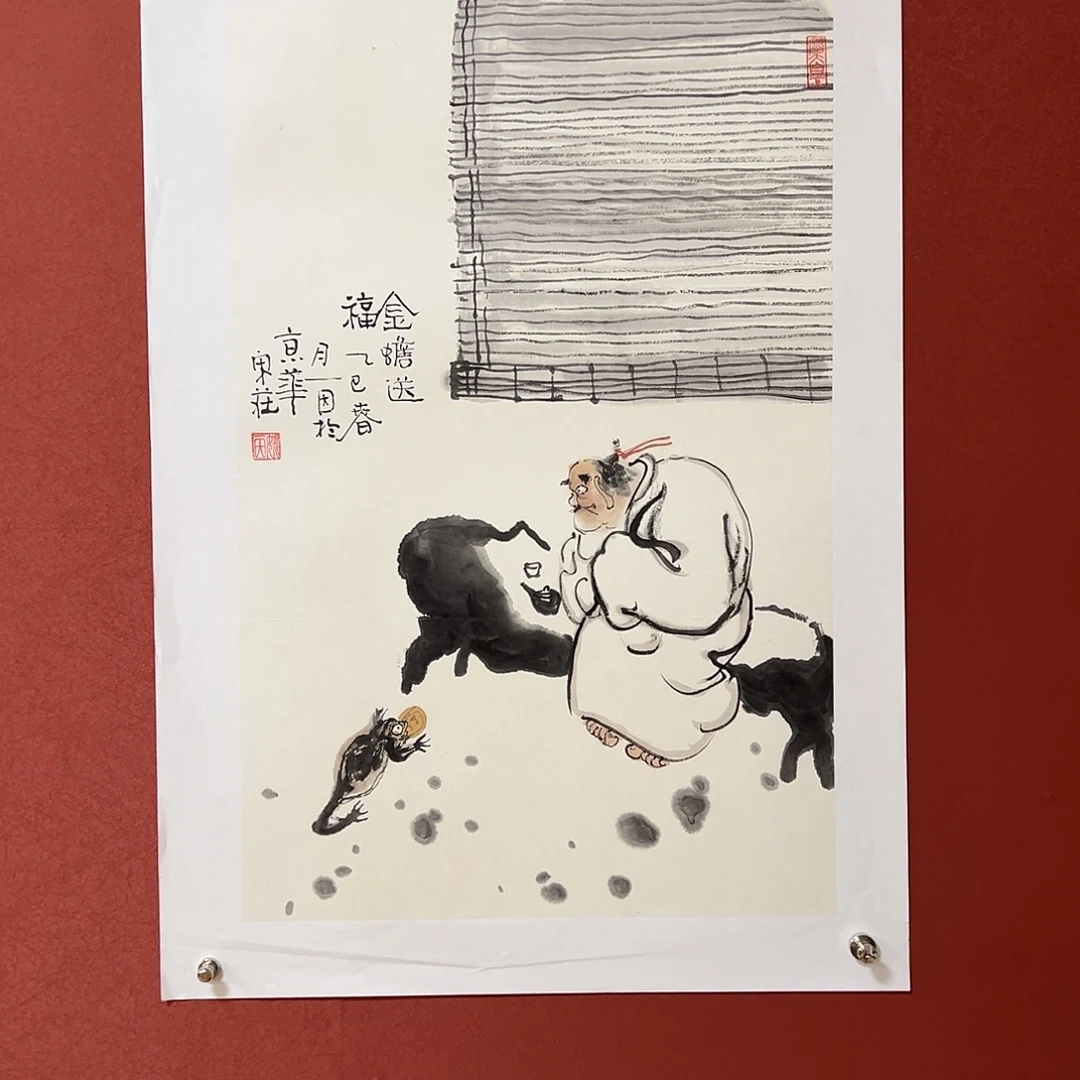 金蟾送
福乙巳春
月一因於
京華
宋莊